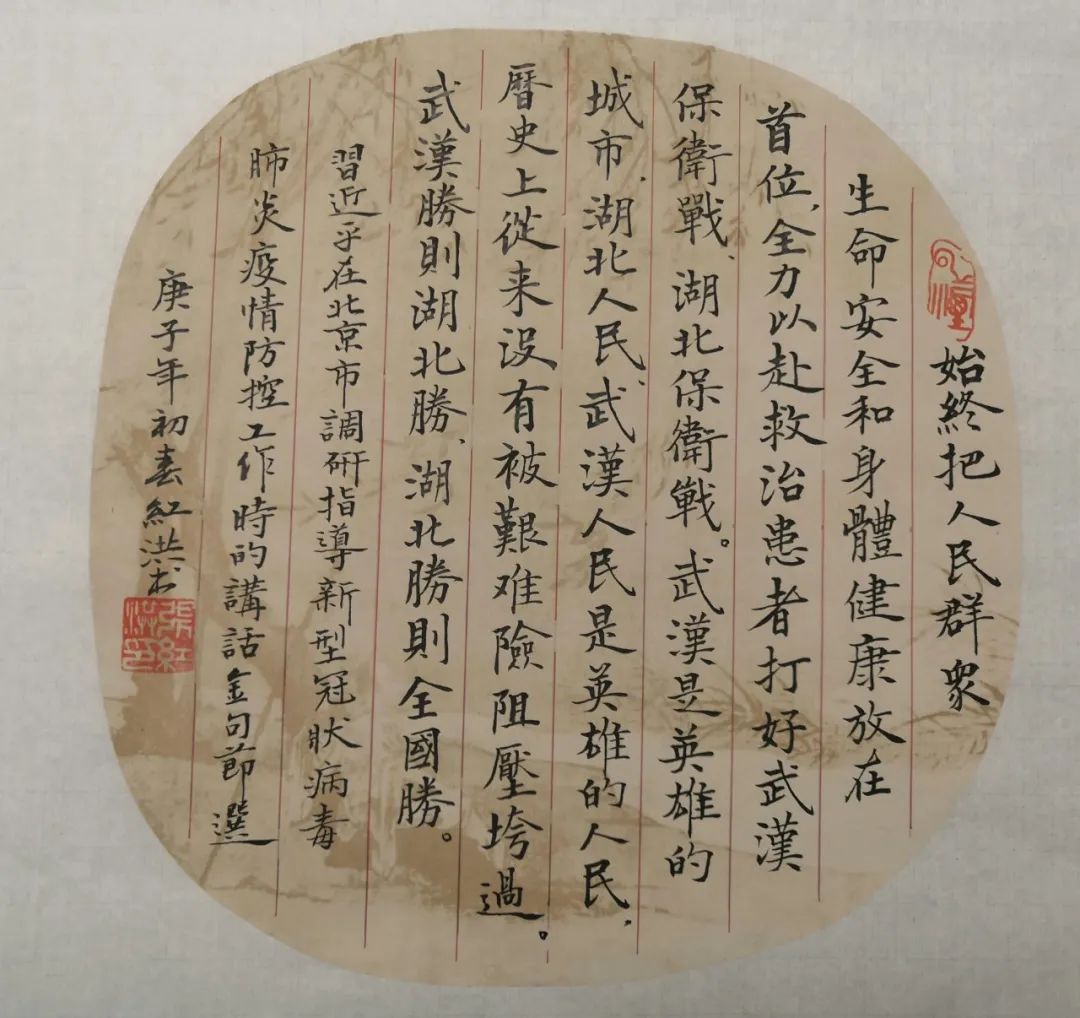 始終把人民群衆
生命安全和身體健康放在
首位,全力以赴救治患者打好武漢
保衛戰、湖北保衛戰。武漢是英雄的
城市、湖北人民、武漢人民是英雄的人民,
曆史上從来没有被艱难險阻壓垮過。
武漢勝則湖北勝、湖北勝則全國勝。
習近平在北京市調研指導新型冠狀病毒
肺炎疫情防控工作時的講話金句節選
庚子年初春紅洪书
張紅
洪印